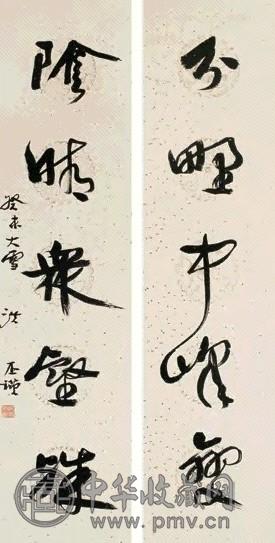 分野中峰變
陰晴衆壑殊
癸未大雪 洪丕謨
中华收藏网
www.pmv.cn